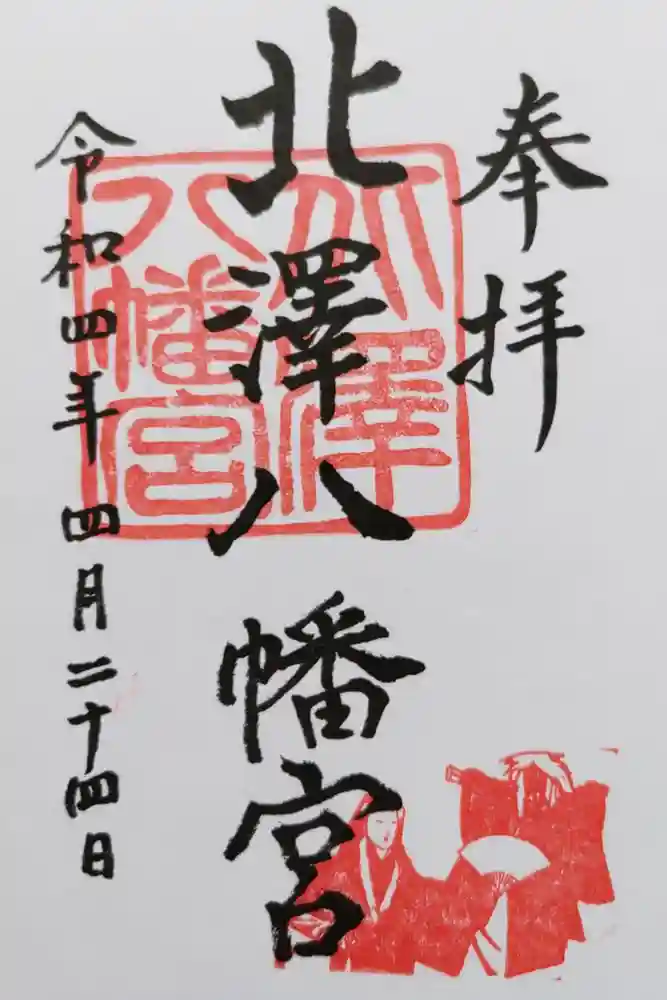 奉拝
北澤八幡宮
北澤
八幡宮
令和四年四月二十四日